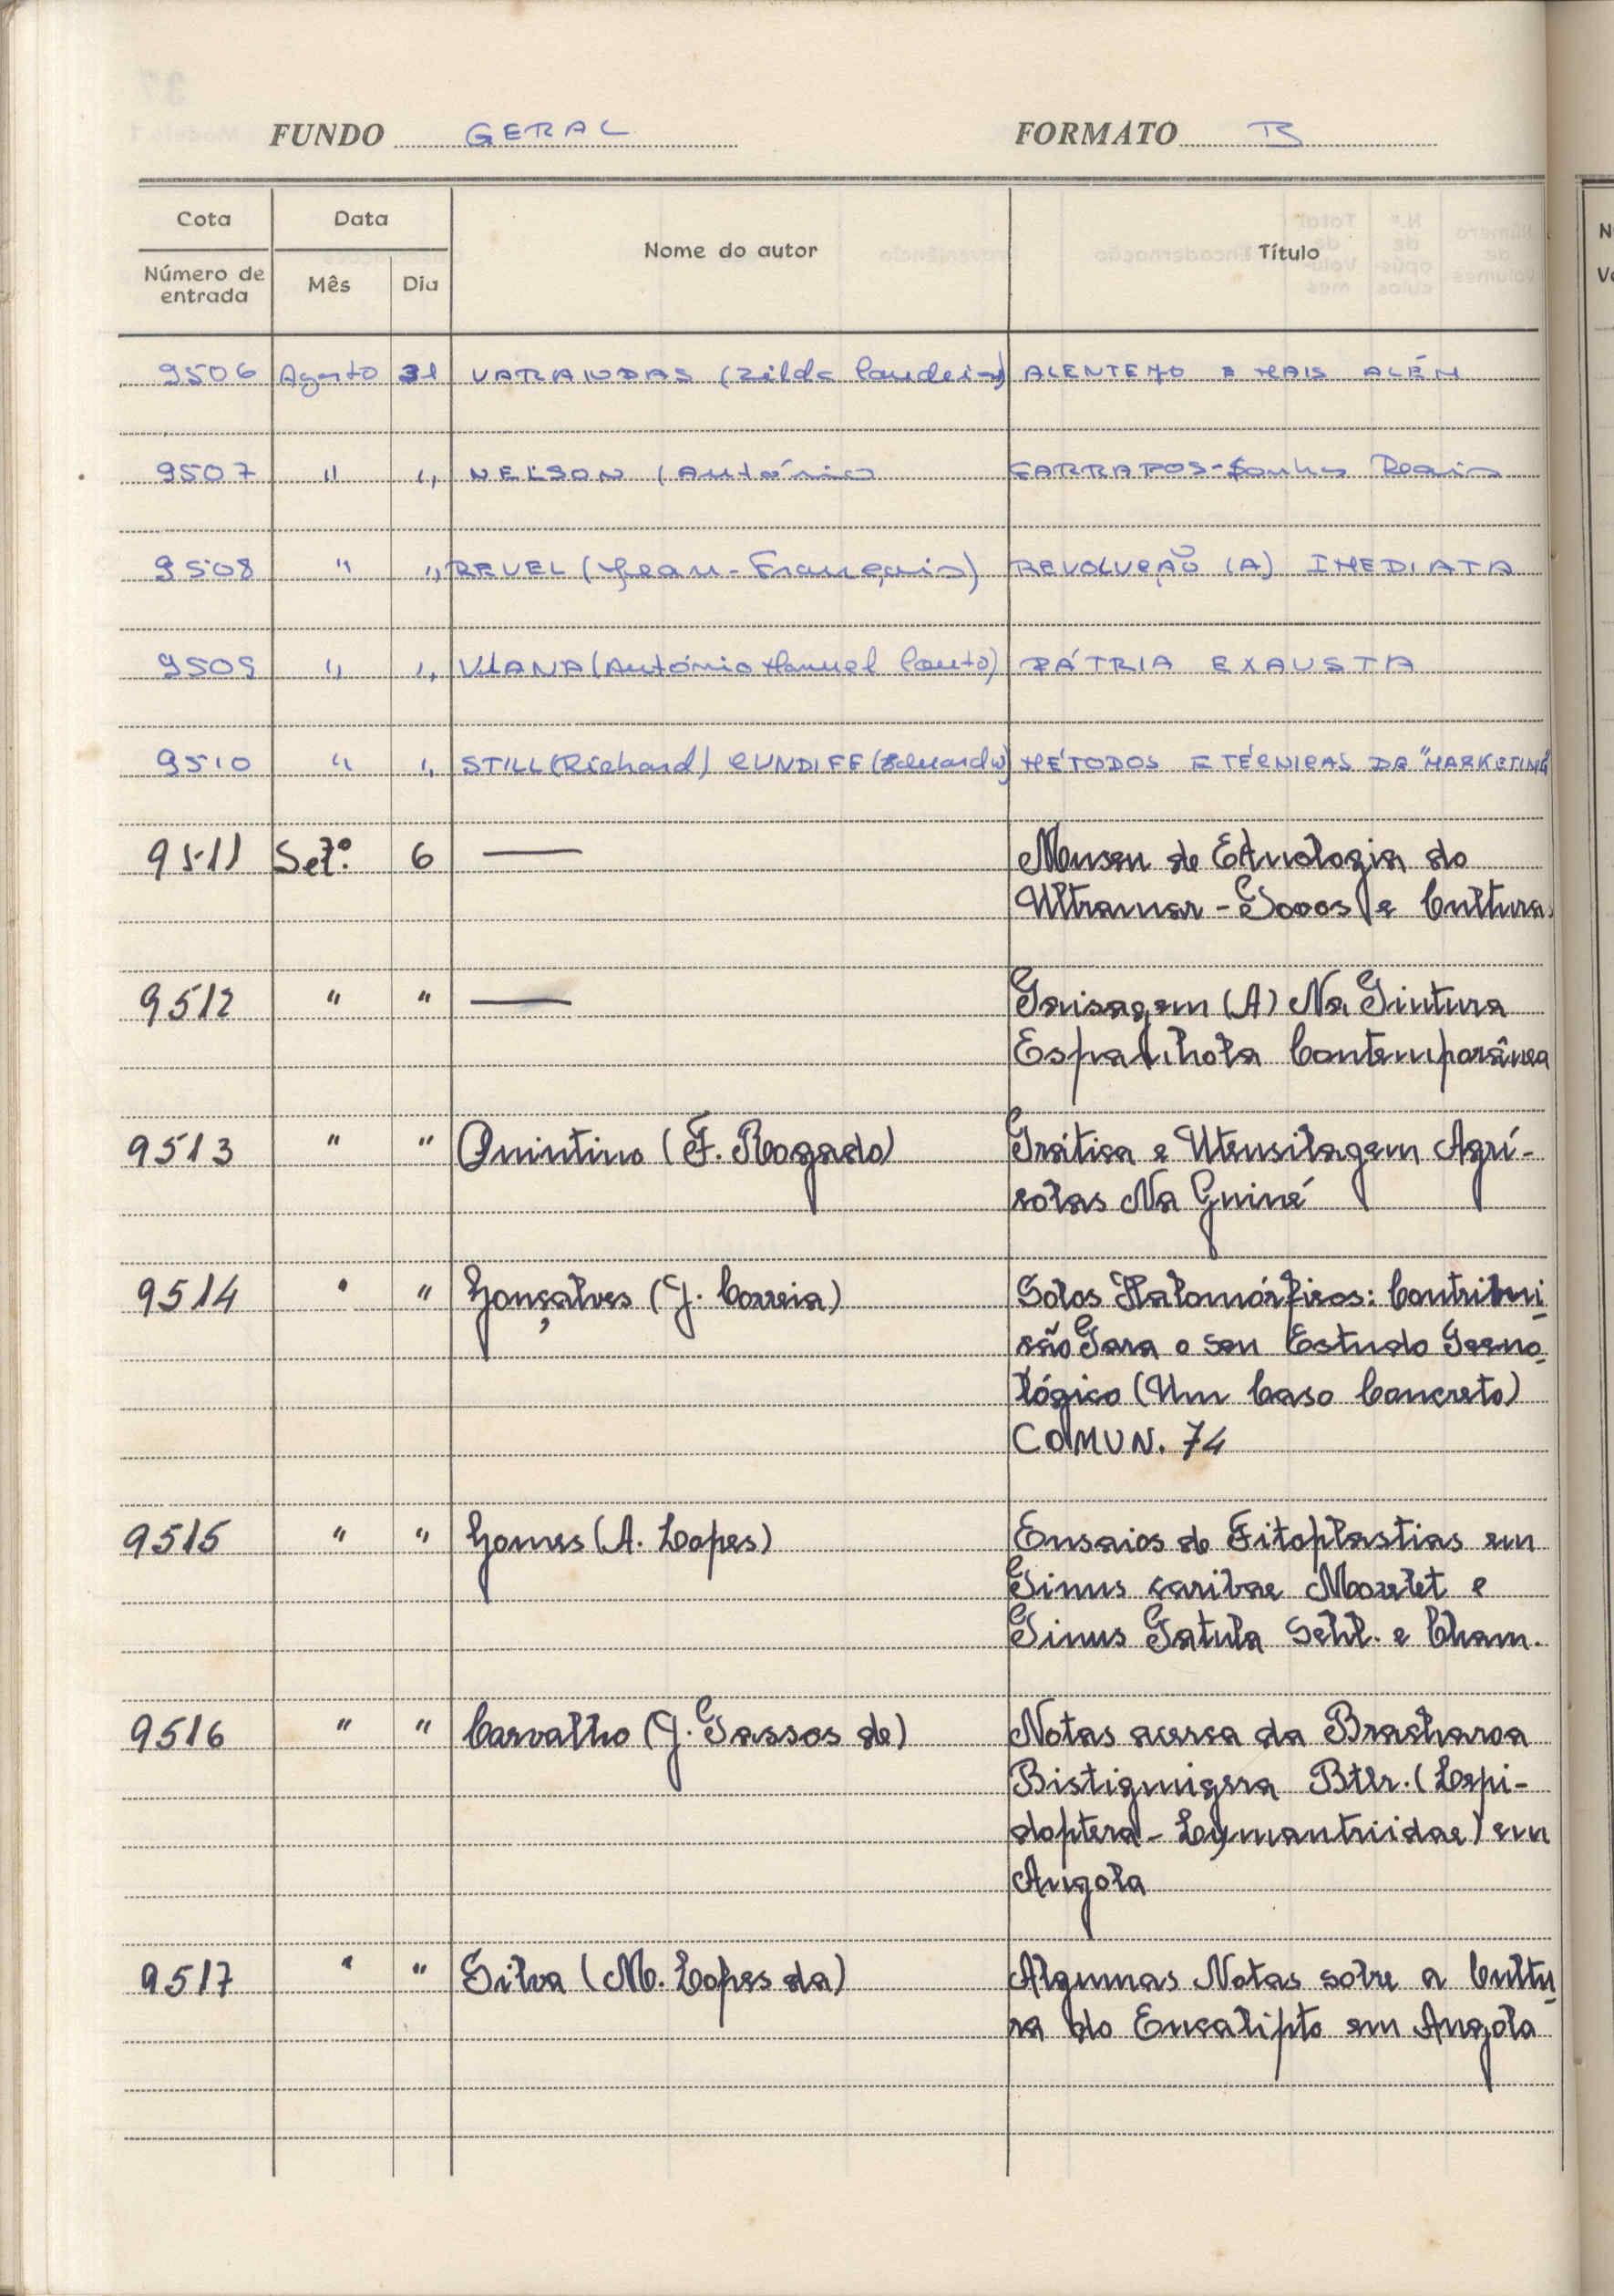 FUNDO GERAL FORMATO B
Cota Data Nome do autor Título
Número de entrada Mês Dia
9506 Agosto 31 VARANDAS (Zilda Candeias) ALENTEJO E MAIS ALÉM
9507 " " NELSON (António FARRAPOS - Sonhos Reais
9508 " " REVEL (Jean-Français) REVOLUÇÃO (A) IMEDIATA
9509 " " VIANA (António Manuel Couto) PÁTRIA EXAUSTA
9510 " " STILL (Richard) CUNDIFF (Eduard W) MÉTODOS E TÉCNICAS DE "MARKETING"
9511 Set.º 6 — Museu de Etnologia do
Ultramar - Povos e Cultura
9512 " " — Paisagem (A) Na Pintura
Espanhola Contemporânea
9513 " " Quintino (F. Rogado) Prática e Utensilagem Agrí-
colas Na Guiné
9514 " " Gonçalves (J. Correia) Solos Halomórficos: Contribui-
ção Para o seu Estudo
lógico (Um Caso Concreto)
COMUN. 74
9515 " " Gomes (A. Lopes) Ensaios de Fitoplastias em
Pinus caribae Morelet e
Pinus Patula Schl. e Cham.
9516 " " Carvalho (J. Passos de) Notas acerca da Bracharoa
Bistigmigera Btlr. (Lepi-
doptera - Lymantriidae) em
Angola
9517 " " Silva (M. Lopes da) Algumas Notas sobre a Cultu-
ra do Eucalipto em Angola